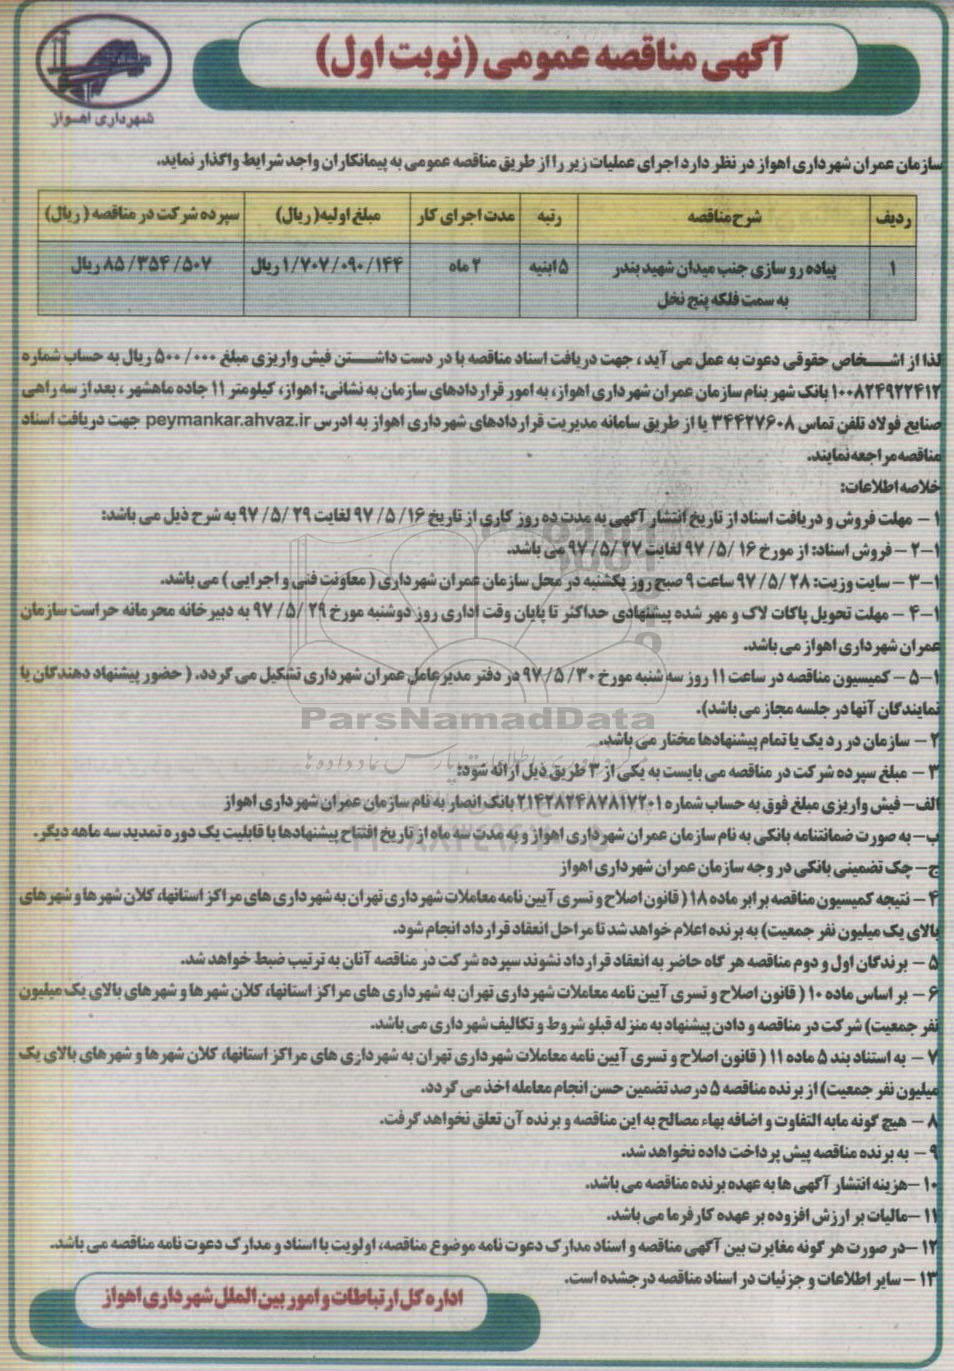 آگهی مناقصه عمومی (نوبت اول)
شهرداری اهواز
سازمان عمران شهرداری اهواز در نظر دارد اجرای عملیات زیر را از طریق مناقصه عمومی به پیمانکاران واجد شرایط واگذار نماید.
ردیف شرح مناقصه رتبه مدت اجرای کار مبلغ اولیه (ریال) سپرده شرکت در مناقصه (ریال)
۱ پیاده رو سازی جنب میدان شهید بندر ۵ ابنیه ۲ ماه ۱/۷۰۷/۰۹۰/۱۴۴ ریال ۸۵/۳۵۴/۵۰۷ ریال
به سمت فلکه پنج نخل
لذا از اشخاص حقوقی دعوت به عمل می آید ، جهت دریافت اسناد مناقصه با در دست داشتن فیش واریزی مبلغ ۵۰۰/۰۰۰ ریال به حساب شماره
۱۰۰۸۲۴۹۲۲۴۱۲ بانک شهر بنام سازمان عمران شهرداری اهواز، به امور قراردادهای سازمان به نشانی: اهواز، کیلومتر ۱۱ جاده ماهشهر ، بعد از سه راهی
صنایع فولاد تلفن تماس ۳۴۴۲۷۶۰۸ یا از طریق سامانه مدیریت قراردادهای شهرداری اهواز به ادرس peymankar.ahvaz.ir جهت دریافت اسناد
مناقصه مراجعه نمایند.
خلاصه اطلاعات:
۱ – مهلت فروش و دریافت اسناد از تاریخ انتشار آگهی به مدت ده روز کاری از تاریخ ۹۷/۵/۱۶ لغایت ۹۷/۵/۲۹ به شرح ذیل می باشد:
۱–۲ – فروش اسناد: از مورخ ۹۷/۵/۱۶ لغایت ۹۷/۵/۲۷ می باشد.
۱–۳ – سایت وزیت: ۹۷/۵/۲۸ ساعت ۹ صبح روز یکشنبه در محل سازمان عمران شهرداری ( معاونت فنی و اجرایی ) می باشد.
۱–۴ – مهلت تحویل پاکات لاک و مهر شده پیشنهادی حداکثر تا پایان وقت اداری روز دوشنبه مورخ ۹۷/۵/۲۹ به دبیرخانه محرمانه حراست سازمان
عمران شهرداری اهواز می باشد.
۱–۵ – کمیسیون مناقصه در ساعت ۱۱ روز سه شنبه مورخ ۹۷/۵/۳۰ در دفتر مدیرعامل عمران شهرداری تشکیل می گردد. ( حضور پیشنهاد دهندگان یا
نمایندگان آنها در جلسه مجاز می باشد).
ParsNamadData
۲ – سازمان در رد یک یا تمام پیشنهادها مختار می باشد.
۳ – مبلغ سپرده شرکت در مناقصه می بایست به یکی از ۳ طریق ذیل ارائه شود:
الف– فیش واریزی مبلغ فوق به حساب شماره ۲۱۴۲۸۲۴۸۷۸۱۷۲۰۱ بانک انصار به نام سازمان عمران شهرداری اهواز
ب– به صورت ضمانتنامه بانکی به نام سازمان عمران شهرداری اهواز و به مدت سه ماه از تاریخ افتتاح پیشنهادها با قابلیت یک دوره تمدید سه ماهه دیگر.
ج– چک تضمینی بانکی در وجه سازمان عمران شهرداری اهواز
۴ – نتیجه کمیسیون مناقصه برابر ماده ۱۸ ( قانون اصلاح و تسری آیین نامه معاملات شهرداری تهران به شهرداری های مراکز استانها، کلان شهرها و شهرهای
بالای یک میلیون نفر جمعیت) به برنده اعلام خواهد شد تا مراحل انعقاد قرارداد انجام شود.
۵ – برندگان اول و دوم مناقصه هر گاه حاضر به انعقاد قرارداد نشوند سپرده شرکت در مناقصه آنان به ترتیب ضبط خواهد شد.
۶ – بر اساس ماده ۱۰ ( قانون اصلاح و تسری آیین نامه معاملات شهرداری تهران به شهرداری های مراکز استانها، کلان شهرها و شهرهای بالای یک میلیون
نفر جمعیت) شرکت در مناقصه و دادن پیشنهاد به منزله قبلو شروط و تکالیف شهرداری می باشد.
۷ – به استناد بند ۵ ماده ۱۱ ( قانون اصلاح و تسری آیین نامه معاملات شهرداری تهران به شهرداری های مراکز استانها، کلان شهرها و شهرهای بالای یک
میلیون نفر جمعیت) از برنده مناقصه ۵ درصد تضمین حسن انجام معامله اخذ می گردد.
۸ – هیچ گونه مابه التفاوت و اضافه بهاء مصالح به این مناقصه و برنده آن تعلق نخواهد گرفت.
۹ – به برنده مناقصه پیش پرداخت داده نخواهد شد.
۱۰ –هزینه انتشار آگهی ها به عهده برنده مناقصه می باشد.
۱۱ –مالیات بر ارزش افزوده بر عهده کارفرما می باشد.
۱۲ –در صورت هر گونه مغایرت بین آگهی مناقصه و اسناد مدارک دعوت نامه موضوع مناقصه، اولویت با اسناد و مدارک دعوت نامه مناقصه می باشد.
۱۳ – سایر اطلاعات و جزئیات در اسناد مناقصه درجشده است.
اداره کل ارتباطات و امور بین الملل شهرداری اهواز